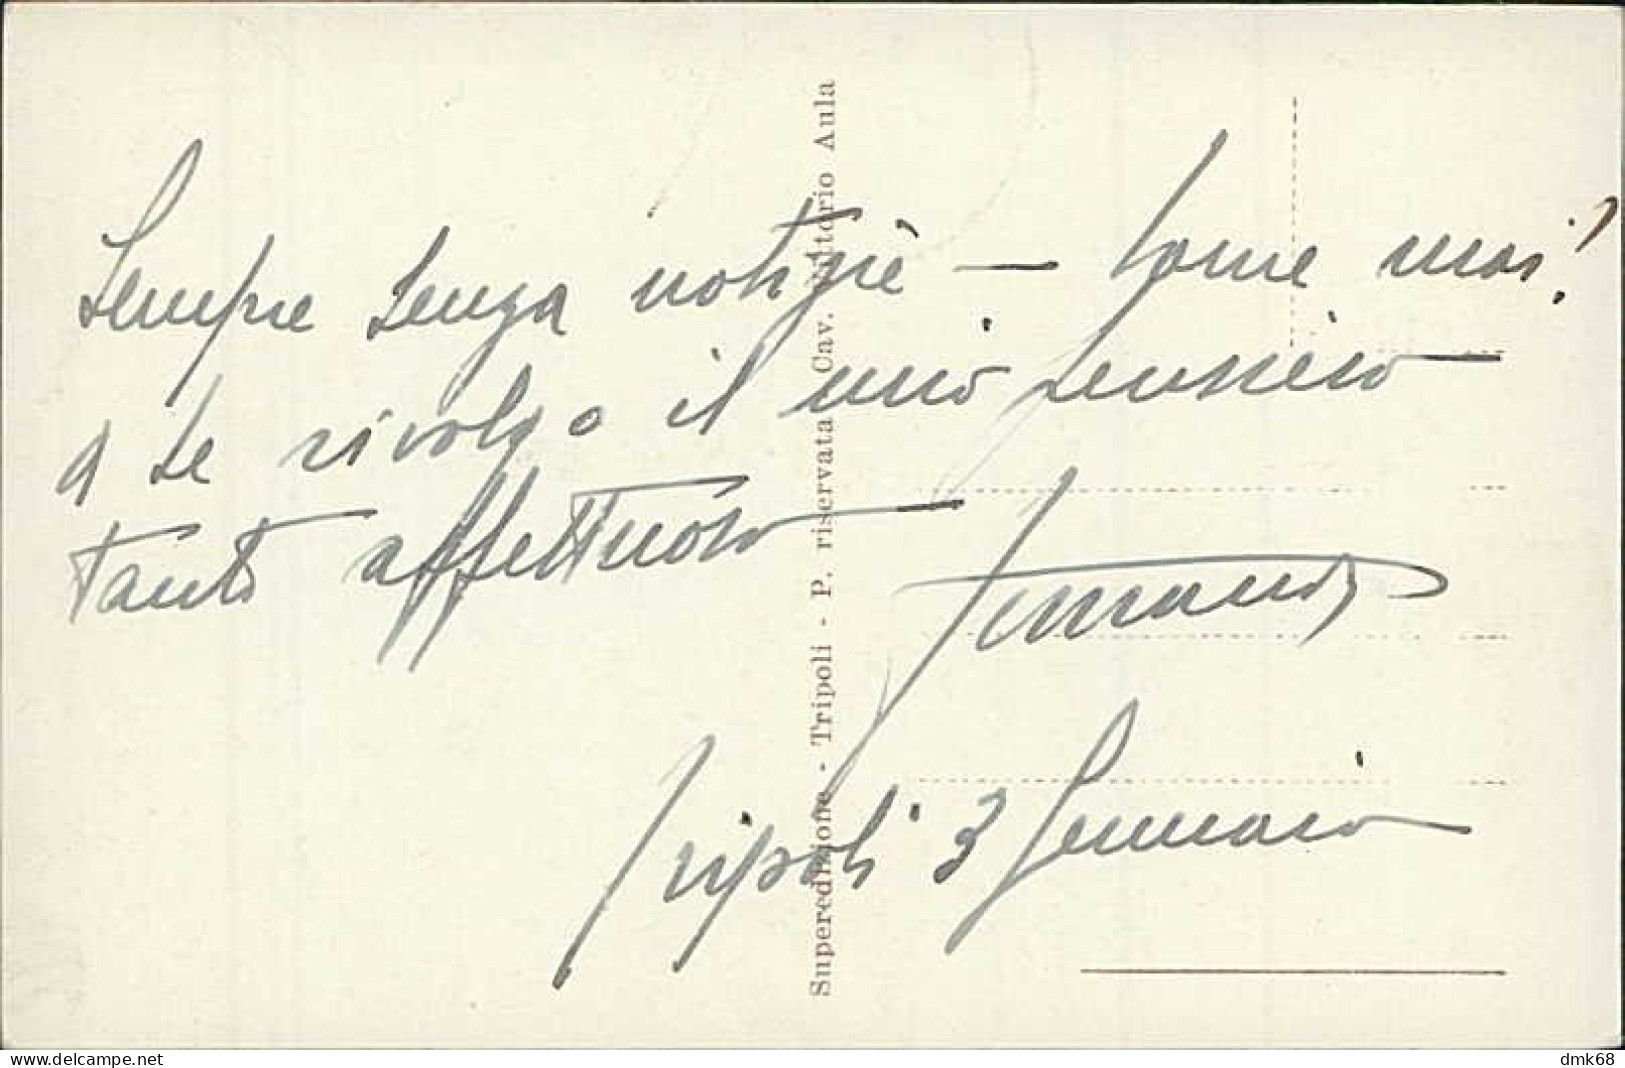 Sempre senza notizie — Come mai?
A te rivolgo il mio pensiero
tanto affettuoso —
Fernando
Tripoli 3 Gennaio
Superedizione - Tripoli - P. riservata Cav. Vittorio Aula
www.delcampe.net
dmk68